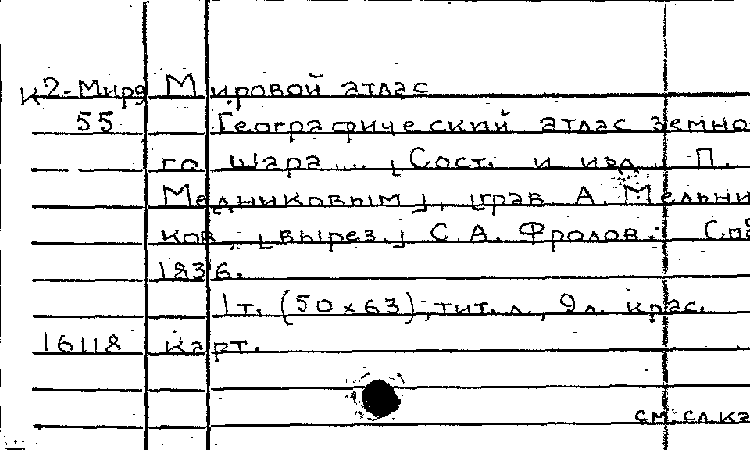 К2-Миря Мировой атлас
55 Географический атлас земно
го шара ... [Сост. и изд. П.
Медниковым], [грав. А. Мельни
ков, [вырез.] С. А. Фролов. Спб
1836.
1 т. (50 x 63); тит. л., 9 л. крас.
16118 карт.
см. сл. к